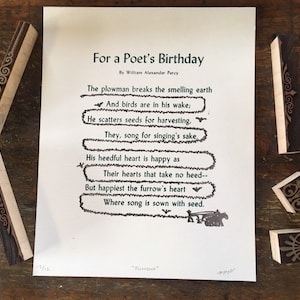 For a Poet's Birthday
By William Alexander Percy
The plowman breaks the smelling earth
And birds are in his wake;
He scatters seeds for harvesting,
They, song for singing's sake.
His heedful heart is happy as
Their hearts that take no heed--
But happiest the furrow's heart
Where song is sown with seed.